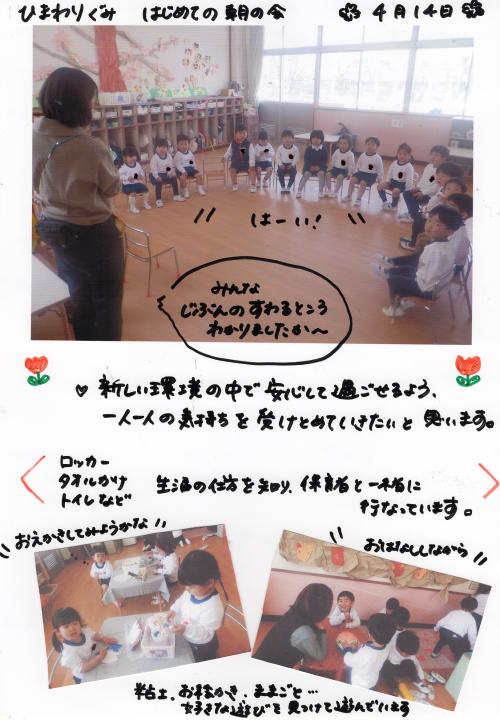 ひまわりぐみ はじめての朝の会 4月14日
はーい!
みんな
じぶんの すわるところ
わかりましたか〜
♡ 新しい環境の中で 安心して 過ごせるよう、
一人一人の気持ちを 受けとめていきたいと 思います。
ロッカー
タオルかけ
トイレなど
生活の仕方を知り、保育者と一緒に
行なっています。
おえかきしてみようかな
おはなししながら
粘土、お絵かき、ままごと…
好きな遊びを 見つけて遊んでいます